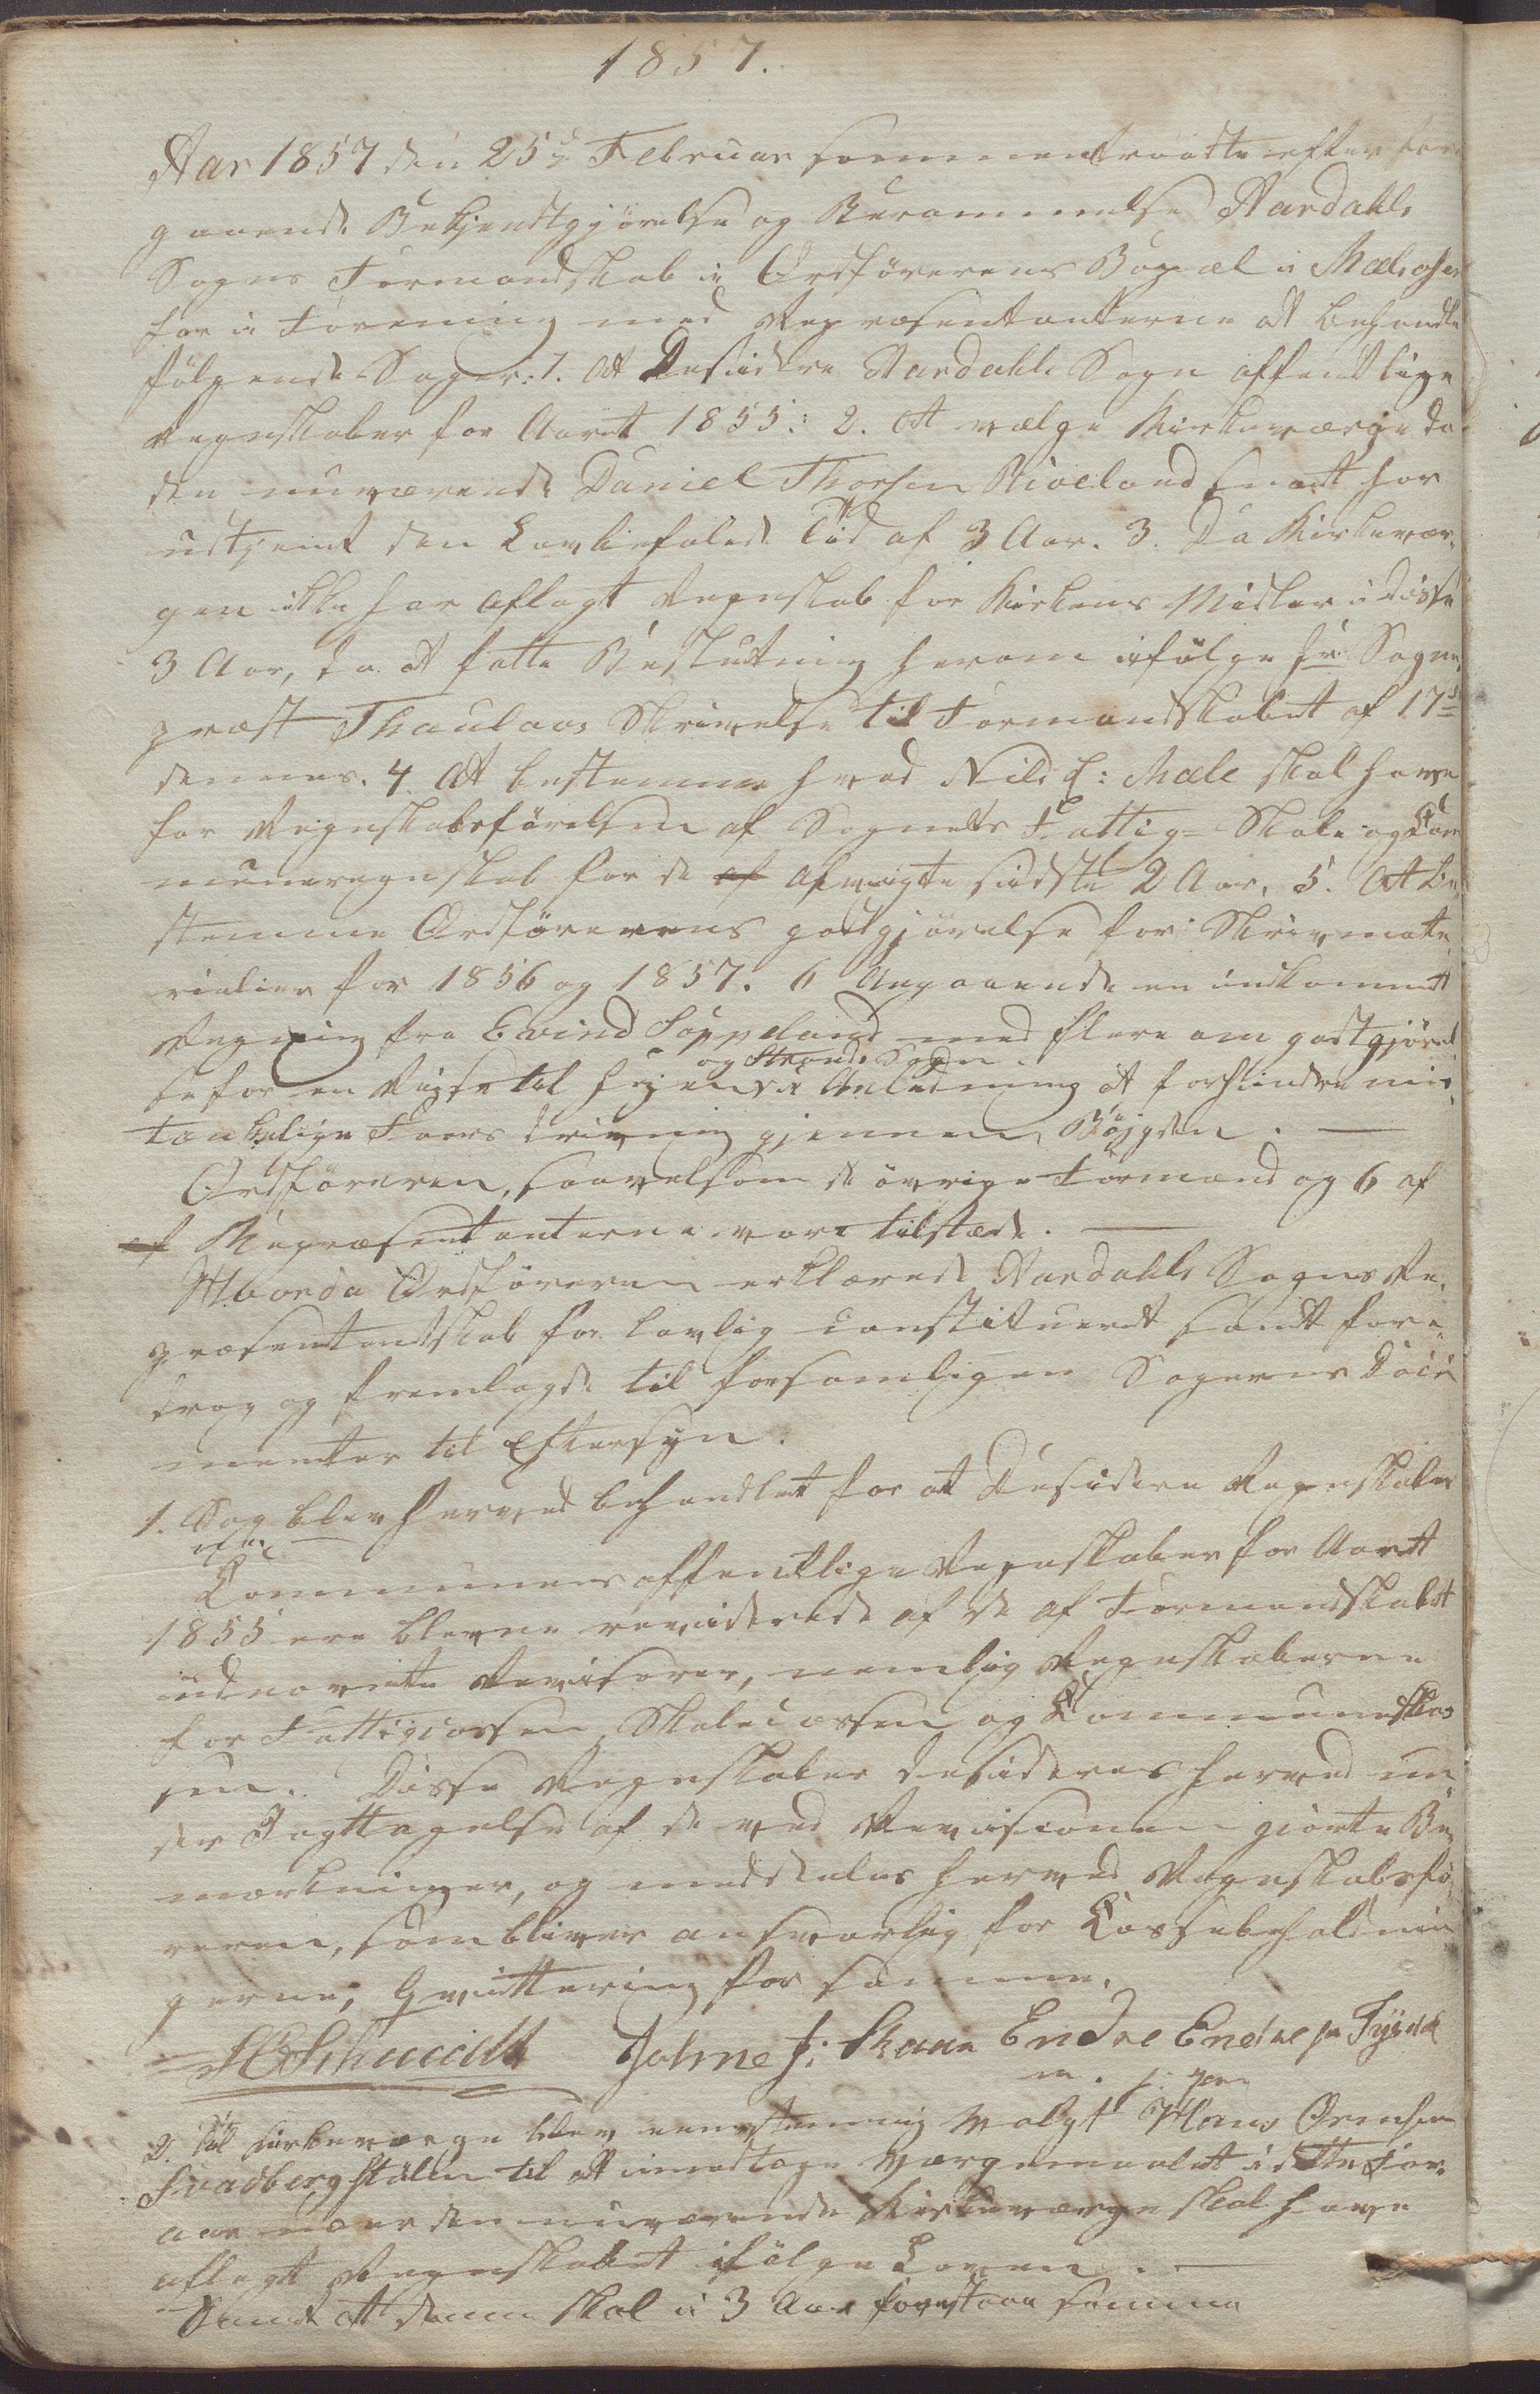 1857.
Aar 1857 den 25de Februar sammentraadte efter fore
gaaende Bekjendtgjørelse og Berammelse Aardahls
Sogns Formandskab i Ordførerens Bopæl i Mælehsen
for i Forening med Repræsentanterne at behandle
følgende Sager: 1. At Desidere Aardahls Sogn offentlige
Regnskaber for Aaret 1855: 2. At vælge Kirkeværge da
den nuværende Daniel Thorsen Riveland snart har
udtjent den Lovbefalede Tid af 3 Aar. 3. Da Kirkevær-
gen ikke har aflagt Regnskab for Kirkens Midler i disse
3 Aar, da at fatte Beslutning herom ifølge hr. Sogne
præst Thaulaos Skrivelse til Formandskabet af 17de
dennes. 4. At bestemme hvad Nils L: Mæle skal have
for Regnskabsførelsen af Sognets Fattig- Skole og Com
muneregnskab for de af afvigte sidste 2 Aar, 5. At be-
stemme Ordførerens godtgjørelse for Skrivmate
rialier for 1856 og 1857. 6 Angaaende en indkommet
Regning fra Eivind Söppeland med flere om godtgjørel
og Strands Sogn
se for en Reise til Hejen i Anledning at forhindre mis-
tænkelige Faars drivning gjennem Bøjgden. —
Ordføreren, saavelsom de øvrige Formænd og 6 af
af Repræsentanterne vare tilstæde. —
Hvorda Ordføreren erklærede Aardahls Sogns Re-
præsentantskab for lovlig constitueret samt fore-
drog og fremlagde til forsamligen Sagernes Docu
menter til Eftersyn.
1. Sag blev herved behandlet for at Desidere Regnskaber
Communens offentlige Regnskaber for Aaret
1855 ere blevne reviderede af de af Formandskabet
udnævnte Revisorer, nemlig Regnskaberne
for Fattigcassen, Skolecassen og Communekas
sen. Disse Regnskaber desideres herved un-
der Iagttagelse af de ved Revisionen giorte Be-
mærkninger, og meddeles herved Regnskabsfø-
reren, som bliver ansvarlig for Cassebeholdnin
gerne, Qvittering for samme.
HCSchmidt Johne J: Skaar Endre Endresen Tysdal
m. f. pen
2. Til Kirkeværge blev eenstemmig valgt Hans Ormsen
Svadbergstølen til at imodtage Værgemaalet i dette For-
aar naar den nuværende Kirkeværge skal have
aflagt Regnskabet ifølge Loven. —
Samt at denne skal i 3 Aar forestaae samme